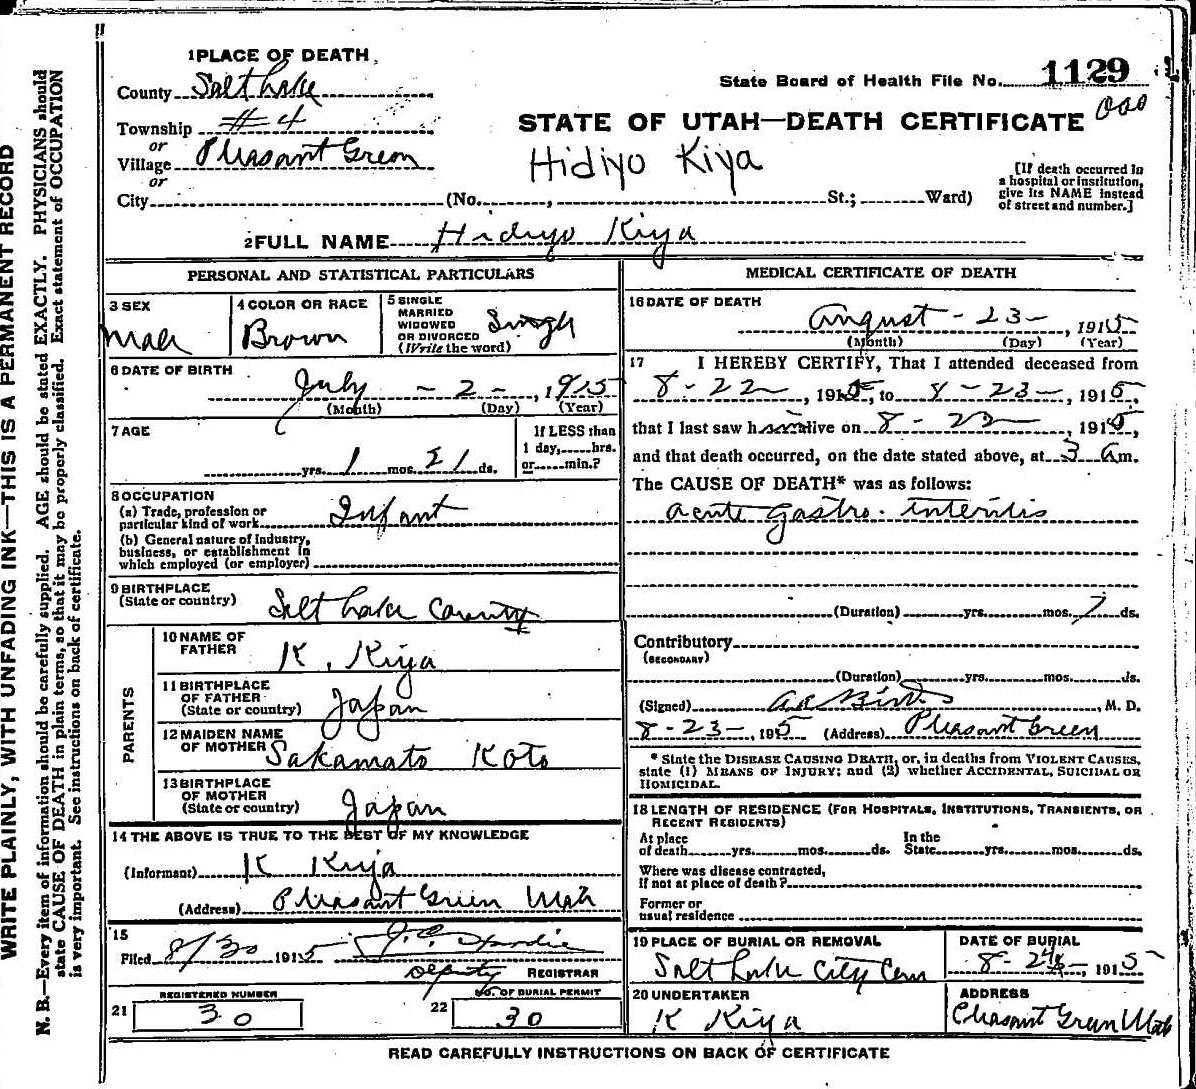 1 PLACE OF DEARTH
County Salt Lake
Township #4
or
Village Pleasant Green
or
City (No. , St.; Ward)
State Board of Health File No. 1129
000
STATE OF UTAH—DEATH CERTIFICATE
Hidiyo Kiya
[If death occurred in
a hospital or institution,
give its NAME instead
of street and number.]
2 FULL NAME Hidiyo Kiya
PERSONAL AND STATISTICAL PARTICULARS
3 SEX
Male
4 COLOR OR RACE
Brown
5 SINGLE
MARRIED
WIDOWED
OR DIVORCED
(Write the word)
Single
6 DATE OF BIRTH
July - 2 - , 1915
(Month) (Day) (Year)
7 AGE
yrs. 1 mos. 21 ds.
If LESS than
1 day, hrs.
or min.?
8 OCCUPATION
(a) Trade, profession or
particular kind of work Infant
(b) General nature of Industry,
business, or establishment in
which employed (or employer)
9 BIRTHPLACE
(State or country) Salt Lake County
PARENTS
10 NAME OF
FATHER K. Kiya
11 BIRTHPLACE
OF FATHER
(State or country) Japan
12 MAIDEN NAME
OF MOTHER Sakamato Koto
13 BIRTHPLACE
OF MOTHER
(State or country) Japan
14 THE ABOVE IS TRUE TO THE BEST OF MY KNOWLEDGE
(Informant) K Kiya
(Address) Pleasant Green Utah
15
Filed 8/30 1915
Deputy REGISTRAR
REGISTERED NUMBER
21 30
NO. OF BURIAL PERMIT
22 30
MEDICAL CERTIFICATE OF DEATH
16 DATE OF DEATH
August - 23 - , 1915
(Month) (Day) (Year)
17 I HEREBY CERTIFY, That I attended deceased from
8 - 22 , 1915, to 8 - 23 - , 1915,
that I last saw him alive on 8 - 22 , 1915,
and that death occurred, on the date stated above, at 3 a m.
The CAUSE OF DEATH* was as follows:
Acute gastro. interitis
(Duration) yrs. mos. 7 ds.
Contributory
(SECONDARY)
(Duration) yrs. mos. ds.
(Signed) , M. D.
8-23- , 1915 (Address) Pleasant Green
* State the DISEASE CAUSING DEATH, or, in deaths from VIOLENT CAUSES,
state (1) MEANS OF INJURY; and (2) whether ACCIDENTAL, SUICIDAL OR
HOMICIDAL.
18 LENGTH OF RESIDENCE (FOR HOSPITALS, INSTITUTIONS, TRANSIENTS, OR
RECENT RESIDENTS)
At place
of death yrs. mos. ds.
In the
State yrs. mos. ds.
Where was disease contracted,
if not at place of death?
Former or
usual residence
19 PLACE OF BURIAL OR REMOVAL
Salt Lake City Cem
DATE OF BURIAL
8 - 24 - , 1915
20 UNDERTAKER
K Kiya
ADDRESS
Pleasant Green Utah
READ CAREFULLY INSTRUCTIONS ON BACK OF CERTIFICATE
WRITE PLAINLY, WITH UNFADING INK—THIS IS A PERMANENT RECORD
N. B.—Every item of information should be carefully supplied. AGE should be stated EXACTLY. PHYSICIANS should
state CAUSE OF DEATH in plain terms, so that it may be properly classified. Exact statement of OCCUPATION
is very important. See instructions on back of certificate.